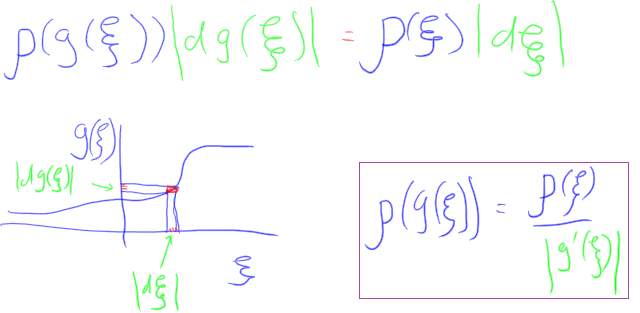 p(g(ξ))|dg(ξ)| = p(ξ)|dξ|
g(ξ)
|dg(ξ)|
p(g(ξ)) = p(ξ) / |g'(ξ)|
ξ
|dξ|